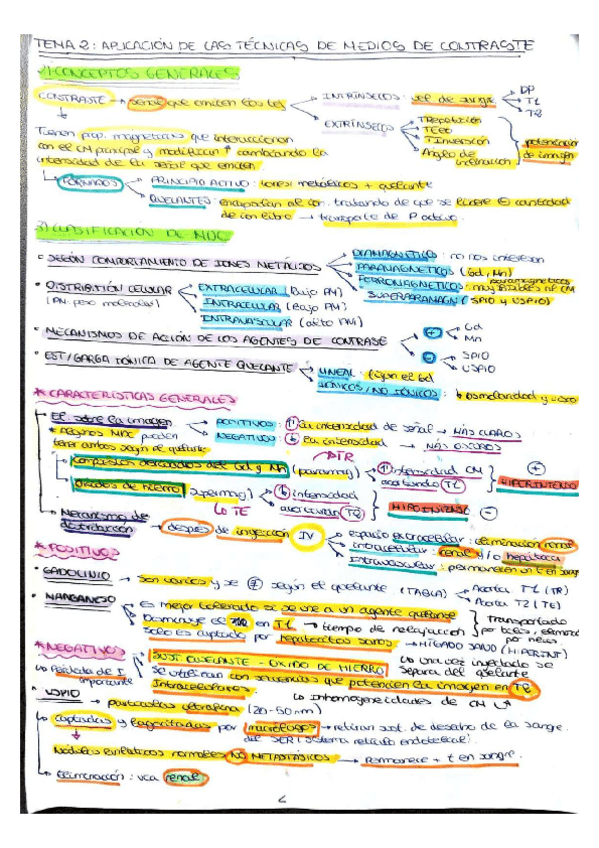 TEMA 2: APLICACIÓN DE LAS TÉCNICAS DE MEDIOS DE CONTRASTE
CONCEPTOS GENERALES
CONTRASTE → señal que emiten los tej
INTRÍNSECOS: vel. de sangre
DP
T1
T2
EXTRÍNSECOS
T Repetición
T Eco
T Inversión
Ángulo de inclinación
potenciación de imagen
Tienen prop. magnéticas que interaccionan
con el CM principal y modifican cambiando la
intensidad de la señal que emiten
FORMADOS
PRINCIPIO ACTIVO: iones metálicos + quelante
QUELANTES: encapsulan al ion, tratando de que se libere cantidad
de ion libre → transporte de P activo.
CLASIFICACIÓN DE MDC
• SEGÚN COMPORTAMIENTO DE IONES METÁLICOS
DIAMAGNÉTICO: no nos interesan
PARAMAGNÉTICOS (Gd, Mn)
FERROMAGNÉTICOS:
SUPERPARAMAGN (SPIO y USPIO)
• DISTRIBUCIÓN CELULAR
(PM-peso molecular)
EXTRACELULAR (Bajo PM)
INTRACELULAR (Bajo PM)
INTRAVASCULAR (alto PM)
• MECANISMOS DE ACCIÓN DE LOS AGENTES DE CONTRASE
+
Gd
Mn
SPIO
USPIO
• EST/CARGA IÓNICA DE AGENTE QUELANTE
LINEAL:
IÓNICOS/NO IÓNICOS:
* CARACTERÍSTICAS GENERALES
Ef. sobre la imagen
* Algunos MDC pueden
tener ambos según el quelante
POSITIVOS: ↑ la intensidad de señal → MÁS CLAROS
NEGATIVOS: ↓ la intensidad → MÁS OSCUROS
Compuestos derivados del Gd y Mn (paramag)
↑ intensidad CM
acortando T1
+
HIPERINTENSO
Óxidos de hierro (supermag)
↓ intensidad
T2
HIPOINTENSO
−
Mecanismo de
distribución → después de inyección IV
espacio extracelular: eliminación renal
intracelular: renal y/o hepática
Intravascular: permanecen un t en sangre
* POSITIVOS
• GADOLINIO → son varios y se según el quelante (TABLA)
Acorta T1 (TR)
Acorta T2 (TE)
• MANGANESO
Es mejor tolerado si se une a un agente quelante
Disminuye en T1 → tiempo de relajación
Solo es captado por hepatocitos sanos → HÍGADO SANO (HIPERINT)
* NEGATIVOS
Pérdida de I
importante
SUST QUELANTE - ÓXIDO DE HIERRO
Una vez inyectado se
separa del quelante
Se utilizan con secuencias que potencien la imagen en T2
Inhomogeneidades de CM
• USPIO → partículas ultrafina (20-50 nm)
captadas y fagocitadas por macrófagos → retiran sust. de desecho de la sangre.
del SER (Sistema retículo endotelial)
Nódulos linfáticos normales NO METASTÁSICOS → permanece + t en sangre.
Eliminación: vía renal